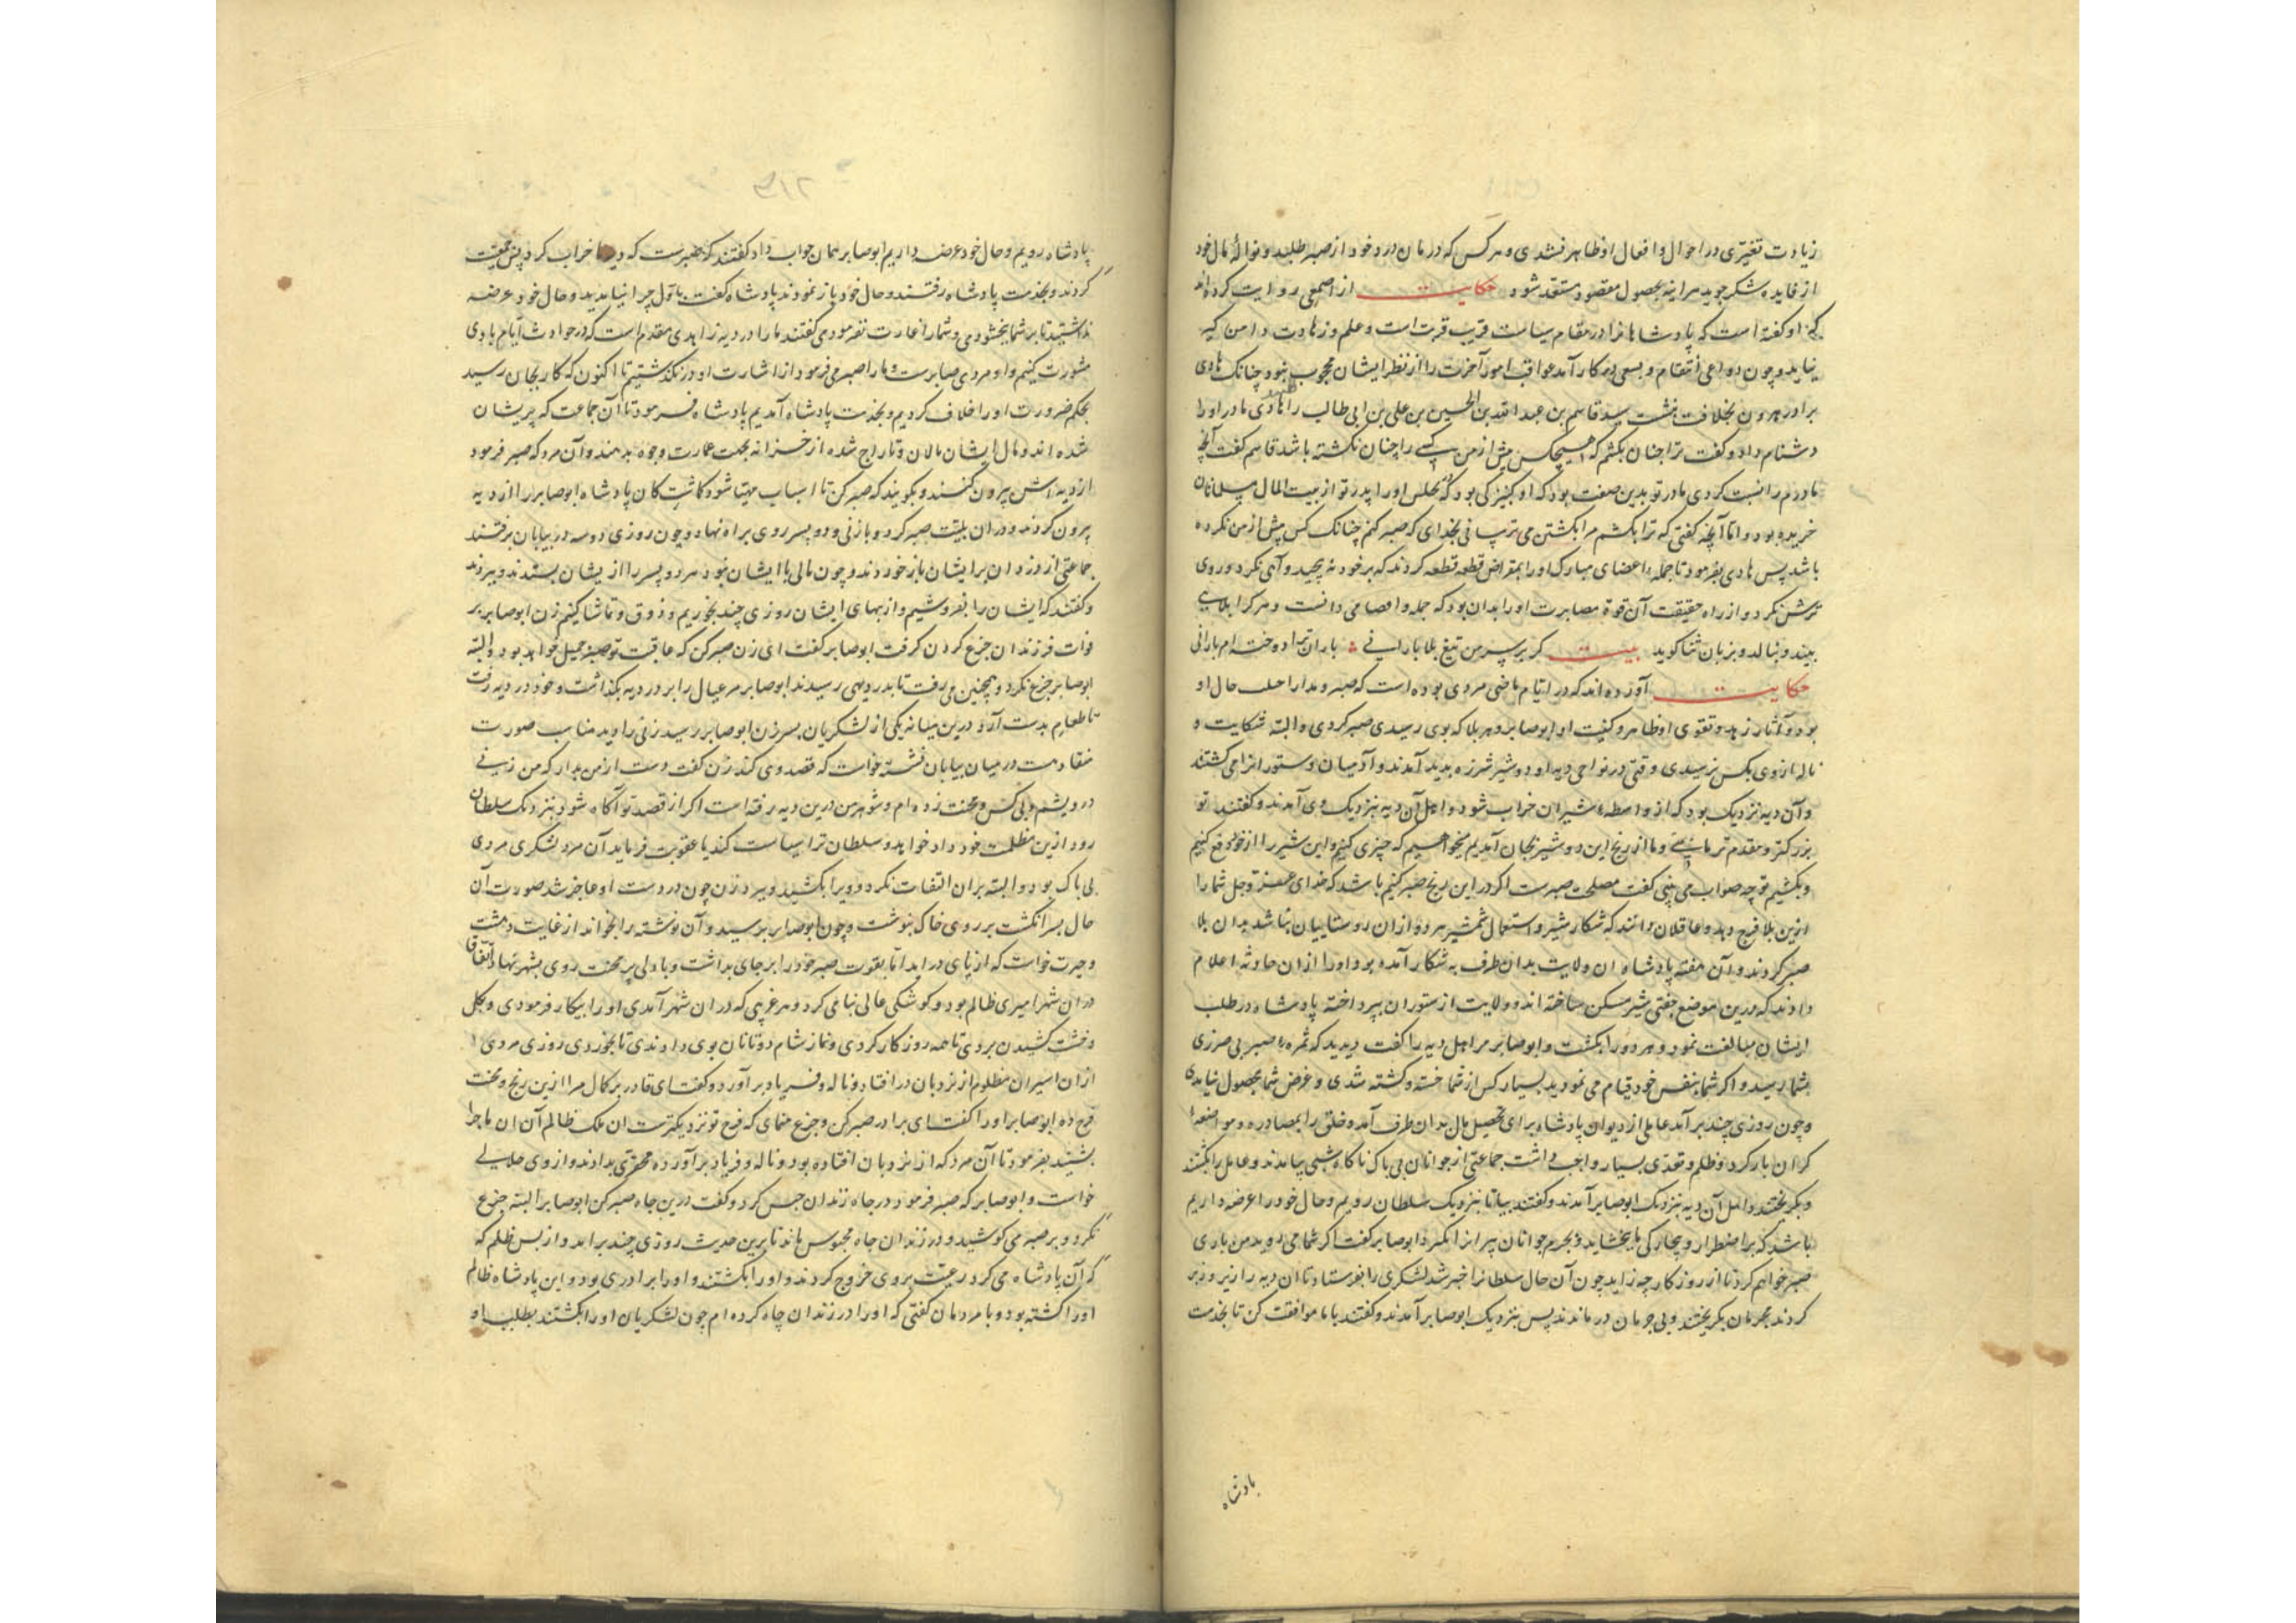 زیادت تغیّری در احوال و افعال او ظاهر نشدی و هر کس که درمان درد خود از صبر طلبد و نوالهٔ مال خود
از فایده شکر جوید هر اینه بحصول مقصود مستعد شود حکایت از اصمعی روایت کرده اند
که او گفته است که پادشاهانرا در مقام سیاست قربت است و علم و زهادت دامن گیر
نیاید و چون دواعی انتقام و بسعی در کار آمد عواقب امور آخرت را از نظر ایشان محجوب شود چنانک هادی
برادر هرون بخلافت بنشست سید قاسم بن عبدالله بن الحسین بن علی بن ابی طالب را هادی مادر او را
دشنام داد و گفت ترا چنان بکشم که هیچکس پیش از من کسی را چنان نکشته باشد قاسم گفت آنچه
مادرم را نسبت کردی مادر تو بدین صفت بود که او کنیزکی بود که اورا پدر تو از بیت المال مسلمانان
خریده بود و اما آنچه گفتی که ترا بکشم مرا بکشتن می ترسانی بخدای که صبر کنم چنانک کس پیش از من نکرده
باشد پس هادی بفرمود تا جمله اعضای مبارک اورا بمقراض قطعه قطعه کردند که بر خود نه پیچید و آهی نکرد و روی
ترش نکرد و از راه حقیقت آن قوة مصابرت اورا بدان بود که جمله و اقصا می دانست و هر کرا بلایی
بیند و ننالد و بزبان شنا گوید بیت گر بر سر من تیغ بلا بارانی باران ترا دوخته ام بارانی
حکایت آورده اند که در ایام ماضی مردی بوده است که صبر و مدارا حلب حال او
بود و آثار زهد و تقوی او ظاهر و کنیت او ابوصابر و هر بلا که بوی رسیدی صبر کردی و البته شکایت و
ناله از وی بکس نرسیدی وقتی در نواحی دیه او دو شیر شرزه پدید آمدند و آدمیان و ستورانرا می کشتند
و آن دیه نزدیک بود که از واسطهٔ شیران خراب شود و اهل آن دیه بنزدیک وی آمدند و گفتند تو
بزرگتر و مقدم تر مایی و ما از رنج این دو شیر بجان آمدیم میخواهیم که چیزی کنیم و این شیر را از خود دفع کنیم
و بکشیم تو چه صواب می بینی گفت مصلحت صبرست اگر در این رنج صبر کنیم باشد که خدای عز و جل شما را
ازین بلا فرج دهد و عاقلان دانند که شکار شیر و استعمال شمشیر هر دو از ان روستاییان نباشد بدان بلا
صبر کردند و آن هفته پادشاه ان ولایت بدان طرف به شکار آمده بود او را ازان حادثه اعلام
دادند که درین موضع جفتی شیر مسکن ساخته اند و ولایت از ستوران بپرداخته پادشاه در طلب
ایشان مبالغت نمود و هر دو را بکشت و ابوصابر مر اهل دیه را گفت دیدید که ثمرهٔ صبر بی ضرری
بشما رسید و اگر شما بنفس خود قیام می نمودید بسیار کس از شما خسته و کشته شدی و غرض شما بحصول نیامدی
و چون روزی چند بر آمد عاملی از دیوان پادشاه برای تحصیل مال بدان طرف آمد و خلق را بمصادره و مواضعه
گران بار کرد و ظلم و تعدّی بسیار واجب داشت جماعتی از جوانان بی باک ناگاه شبی بیامدند و عامل را بکشتند
و بگریختند و اهل آن دیه بنزدیک ابوصابر آمدند و گفتند بیا تا بنزدیک سلطان رویم و حال خود را عرضه داریم
باشد که بر اضطرار و بیچارگی ما بخشاید و بجرم جوانان پیرانرا نگیرد ابوصابر گفت اگر شما می روید من باری
صبر خواهم کرد تا از روزگار چه زاید چون آن حال سلطانرا خبر شد لشکری را بفرستاد تا ان دیه را زیر و زبر
کردند مجرمان بگریختند و بی جرمان در ماندند پس بنزدیک ابوصابر آمدند و گفتند با ما موافقت کن تا بخدمت
پادشاه
پادشاه رویم و حال خود عرضه داریم ابوصابر همان جواب داد گفتند که صبرست که دیه ما خراب کرد پس جمعیت
کردند و بخدمت پادشاه رفتند و حال خود باز نمودند پادشاه گفت باول چرا نیامدید و حال خود عرضه
نداشتید تا بر شما بخشودمی و شما را غارت نفرمودمی گفتند ما را در دیه زاهدی مقدم است که در حوادث ایام با وی
مشورت کنیم و او مردی صابرست و ما را صبر می فرمود از اشارت او در نگذشتیم تا اکنون که کار بجان رسید
بحکم ضرورت اورا خلاف کردیم و بخدمت پادشاه آمدیم پادشاه فرمود تا آن جماعت که پریشان
شده اند و مال ایشان مالان و تاراج شده از خزانه بجهت عمارت وجوه بدهند و آن مرد که صبر فرمود
از دیه اش بیرون کنند و بگویند که صبر کن تا اسباب مهیا شود گماشتگان پادشاه ابوصابر را از دیه
بیرون کردند و دران بلیّت صبر کرد و با زنی و دو پسر روی براه نهاد و چون روزی دو سه در بیابان برفتند
جماعتی از دزدان بر ایشان باز خوردند و چون مالی با ایشان نبود هر دو پسر را از یشان بستدند و ببردند
و گفتند که ایشان را بفروشیم و از بهای ایشان روزی چند بخوریم و ذوق و تماشا کنیم زن ابوصابر بر
فوات فرزندان جزع کردن گرفت ابوصابر گفت ای زن صبر کن که عاقبت تو صبر جمیل خواهد بود و البته
ابوصابر جزع نکرد و همچنین می رفت تا بدر دیهی رسیدند ابوصابر مر عیال را بر در دیه بگذاشت و خود در دیه رفت
تا طعام بدست آرد درین میانه یکی از لشکریان بسر زن ابوصابر رسید زنی را دید مناسب صورت
متقادمت در میان بیابان نشسته خواست که قصد وی کند زن گفت دست از من بدار که من زنی
درویشم و بی کس و محنت زده ام و شوهر من درین دیه رفته است اگر از قصد تو آگاه شود بنزدیک سلطان
رود ازین مظلمت خود داد خواهد و سلطان ترا سیاست کند یا عقوبت فرماید آن مرد لشکری مردی
بی باک بود و البته بران التفات نکرد و ویرا بکشید و ببرد زن چون در دست او عاجز شد صورت آن
حال بسر انگشت بر روی خاک بنوشت و چون ابوصابر برسید و آن نوشته را بخواند از غایت دهشت
و حیرت خواست که از پای در اید اما بقوت صبر خود را بر جای بداشت و با دلی پر محنت روی بشهر نهاد اتفاقا
دران شهر امیری ظالم بود و کوشکی عالی بنا می کرد و هر غریبی که دران شهر آمدی اورا بیکار فرمودی و بگل
و خشت کشیدن بردی تا همه روز کار کردی و نماز شام دوتا نان بوی دادندی تا بخوردی روزی مردی
ازان اسیران مظلوم از نردبان در افتاد و ناله و فریاد بر آورد و گفت ای قادر بر کمال مرا ازین رنج و محنت
فرج ده ابوصابر اورا گفت ای برادر صبر کن و جزع منمای که فرج تو نزدیکترست ان ملک ظالم آن ان ماجرا
بشنید بفرمود تا آن مرد که از نردبان افتاده بود و ناله و فریاد برآورده بدادند و از وی حلالی
خواست و ابوصابر که صبر فرمود در چاه زندان حبس کرد و گفت درین چاه صبر کن ابوصابر البته جزع
نکرد و بر صبر می کوشید و در زندان چاه محبوس ماند تا برین حدیث روزی چند براید و از بس ظلم که
که آن پادشاه می کرد رعیت بر وی خروج کردند و اورا بکشتند و اورا برادری بود و این پادشاه ظالم
اورا کشته بود و با مردمان گفتی که اورا در زندان چاه کرده ام چون لشکریان اورا بکشتند بطلب او